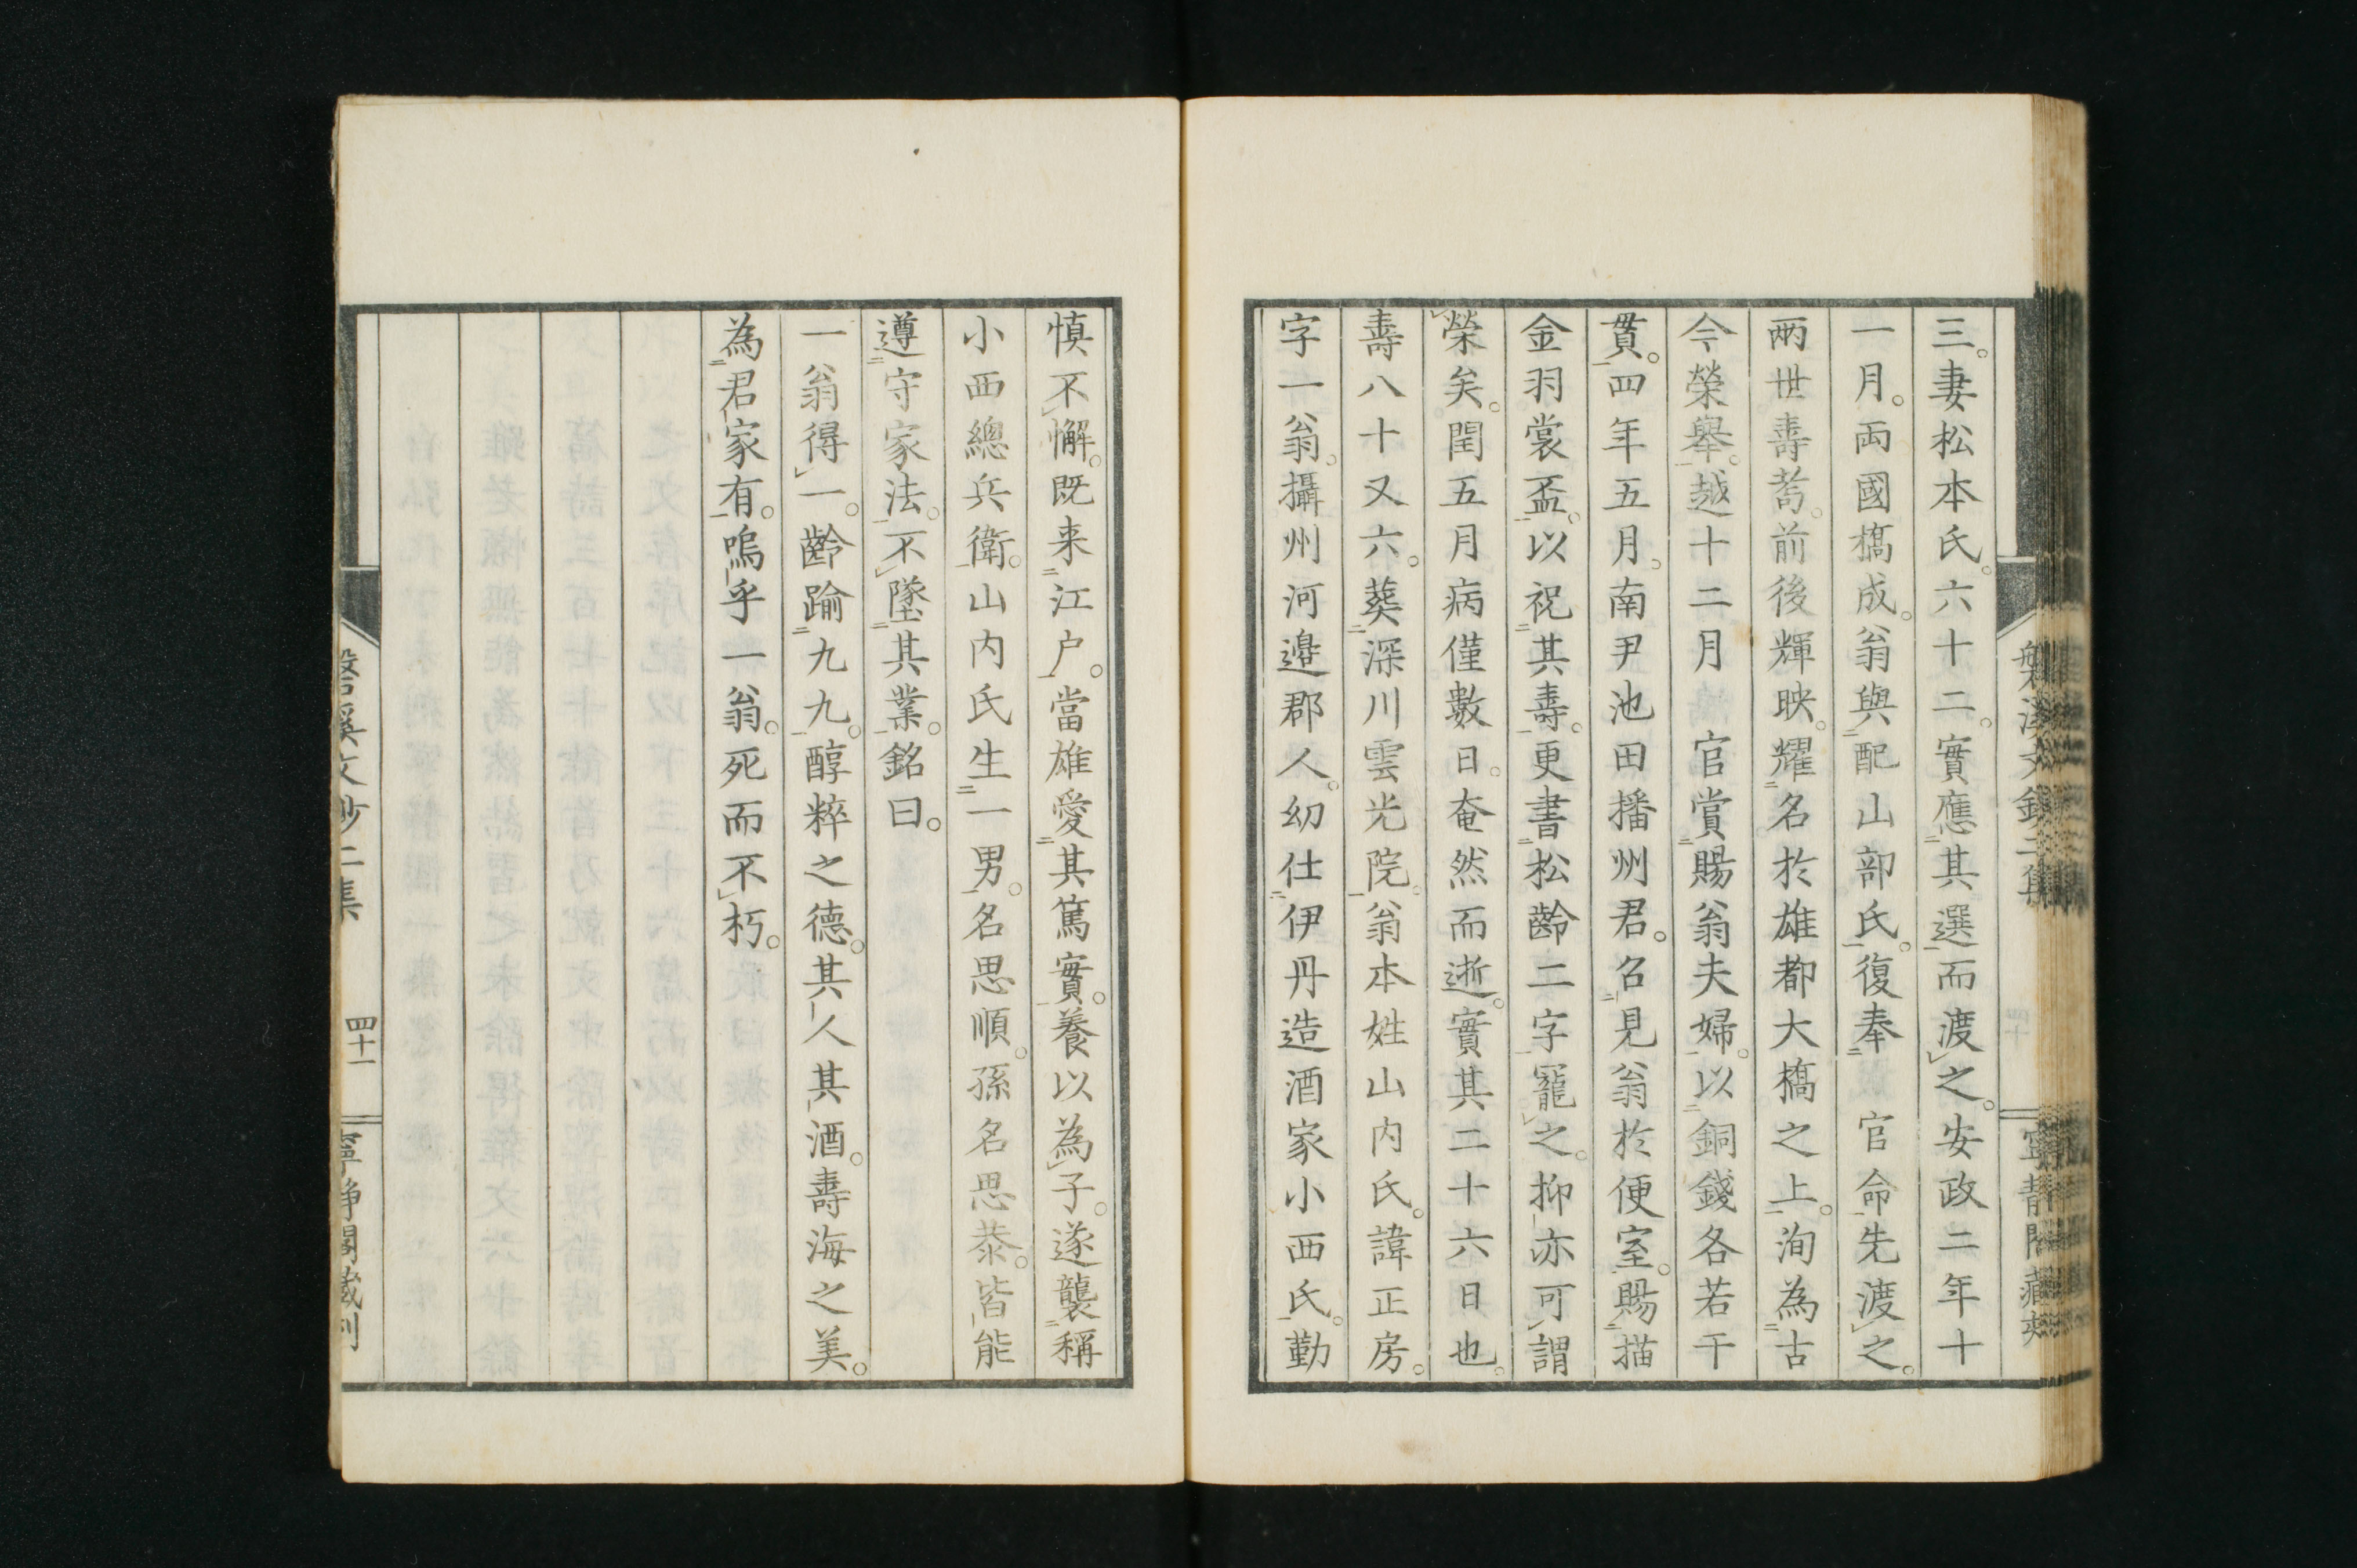 三。妻松本氏。六十二。實應其選而渡之。安政二年十
一月。両國橋成。翁與配山部氏。復奉　官命先渡之。
兩世壽耇。前後輝映。耀名於雄都大橋之上。洵為古
今榮舉。越十二月　官賞賜翁夫婦。以銅錢各若干
貫。四年五月。南尹池田播州君。召見翁於便室。賜描
金羽裳盃。以祝其壽。更書松齡二字寵之。抑亦可謂
榮矣。閏五月病僅數日。奄然而逝。實其二十六日也。
壽八十又六。葬深川雲光院。翁本姓山内氏。諱正房。
字一翁。攝州河邉郡人。幼仕伊丹造酒家小西氏。勤
慎不懈。既来江戸。當雄愛其篤實。養以為子。遂襲稱
小西總兵衛。山内氏生一男。名思順。孫名思恭。皆能
遵守家法。不墜其業。銘曰。
一翁得一。齡踰九九。醇粹之德。其人其酒。壽海之美。
為君家有。嗚乎一翁。死而不朽。
四十一